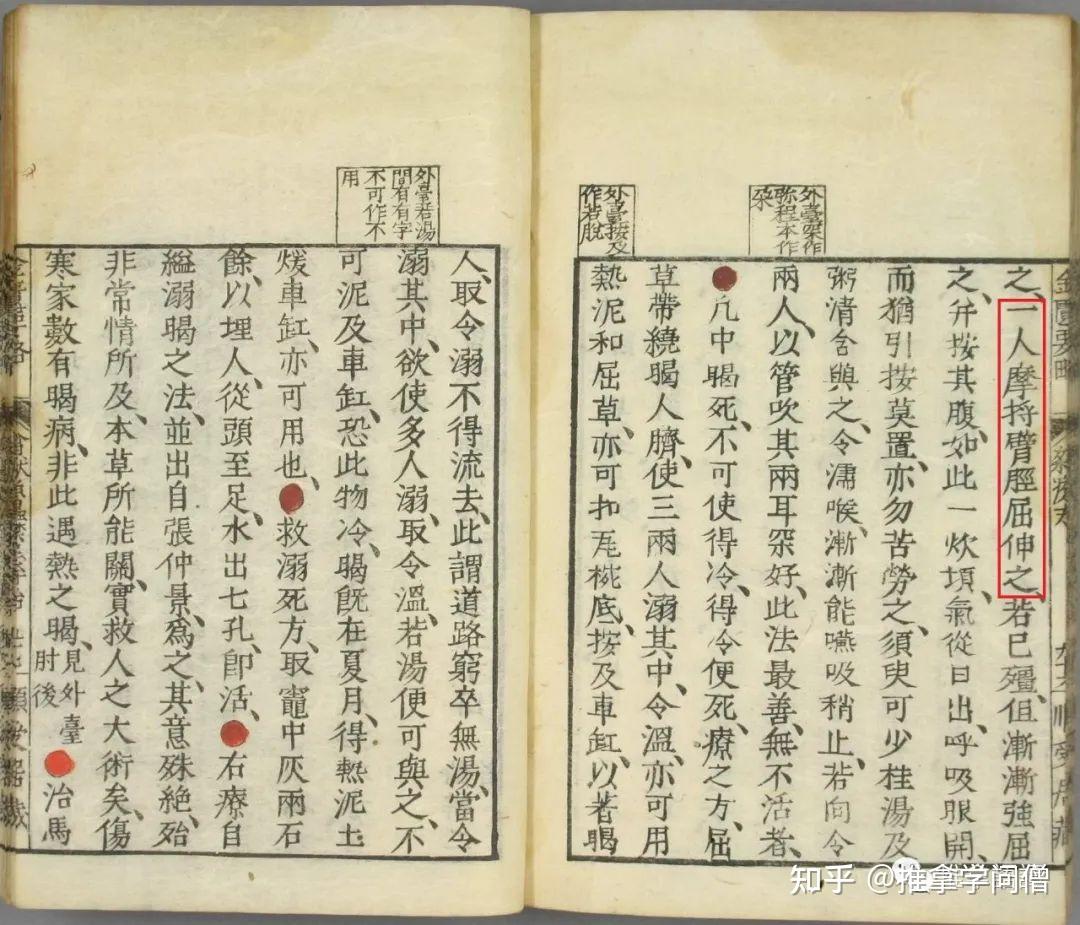 外臺罙作
弥程本作
罙
外臺按及
作若脫
之、一人摩捋臂脛屈伸之、若已殭、但漸漸強屈
之、并按其腹、如此一炊頃、氣從口出、呼吸眼開、
而猶引按莫置、亦勿苦勞之、須臾可少桂湯及
粥清含與之、令濡喉、漸漸能嚥吸稍止、若向令
兩人、以管吹其兩耳罙好、此法最善、無不活者、
凡中暍死、不可使得冷、得令便死、療之方、屈
草帶繞暍人臍、使三兩人溺其中、令溫、亦可用
熱泥和屈草、亦可扣瓦椀底、按及車缸、以著暍
外臺若湯
間有有字
不可作不
用
人、取令溺不得流去、此謂道路窮卒無湯、當令
溺其中、欲使多人溺、取令溫、若湯便可與之、不
可泥及車缸、恐此物冷、暍既在夏月、得熱泥土
煖車缸、亦可用也、救溺死方、取竈中灰兩石
餘、以埋人、從頭至足、水出七孔、卽活、右療自
縊溺暍之法、並出自張仲景、爲之、其意殊絕、殆
非常情所及、本草所能關、實救人之大術矣、傷
寒家數有暍病、非此遇熱之暍、見外臺
肘後
治馬
知乎 @推拿学问僧